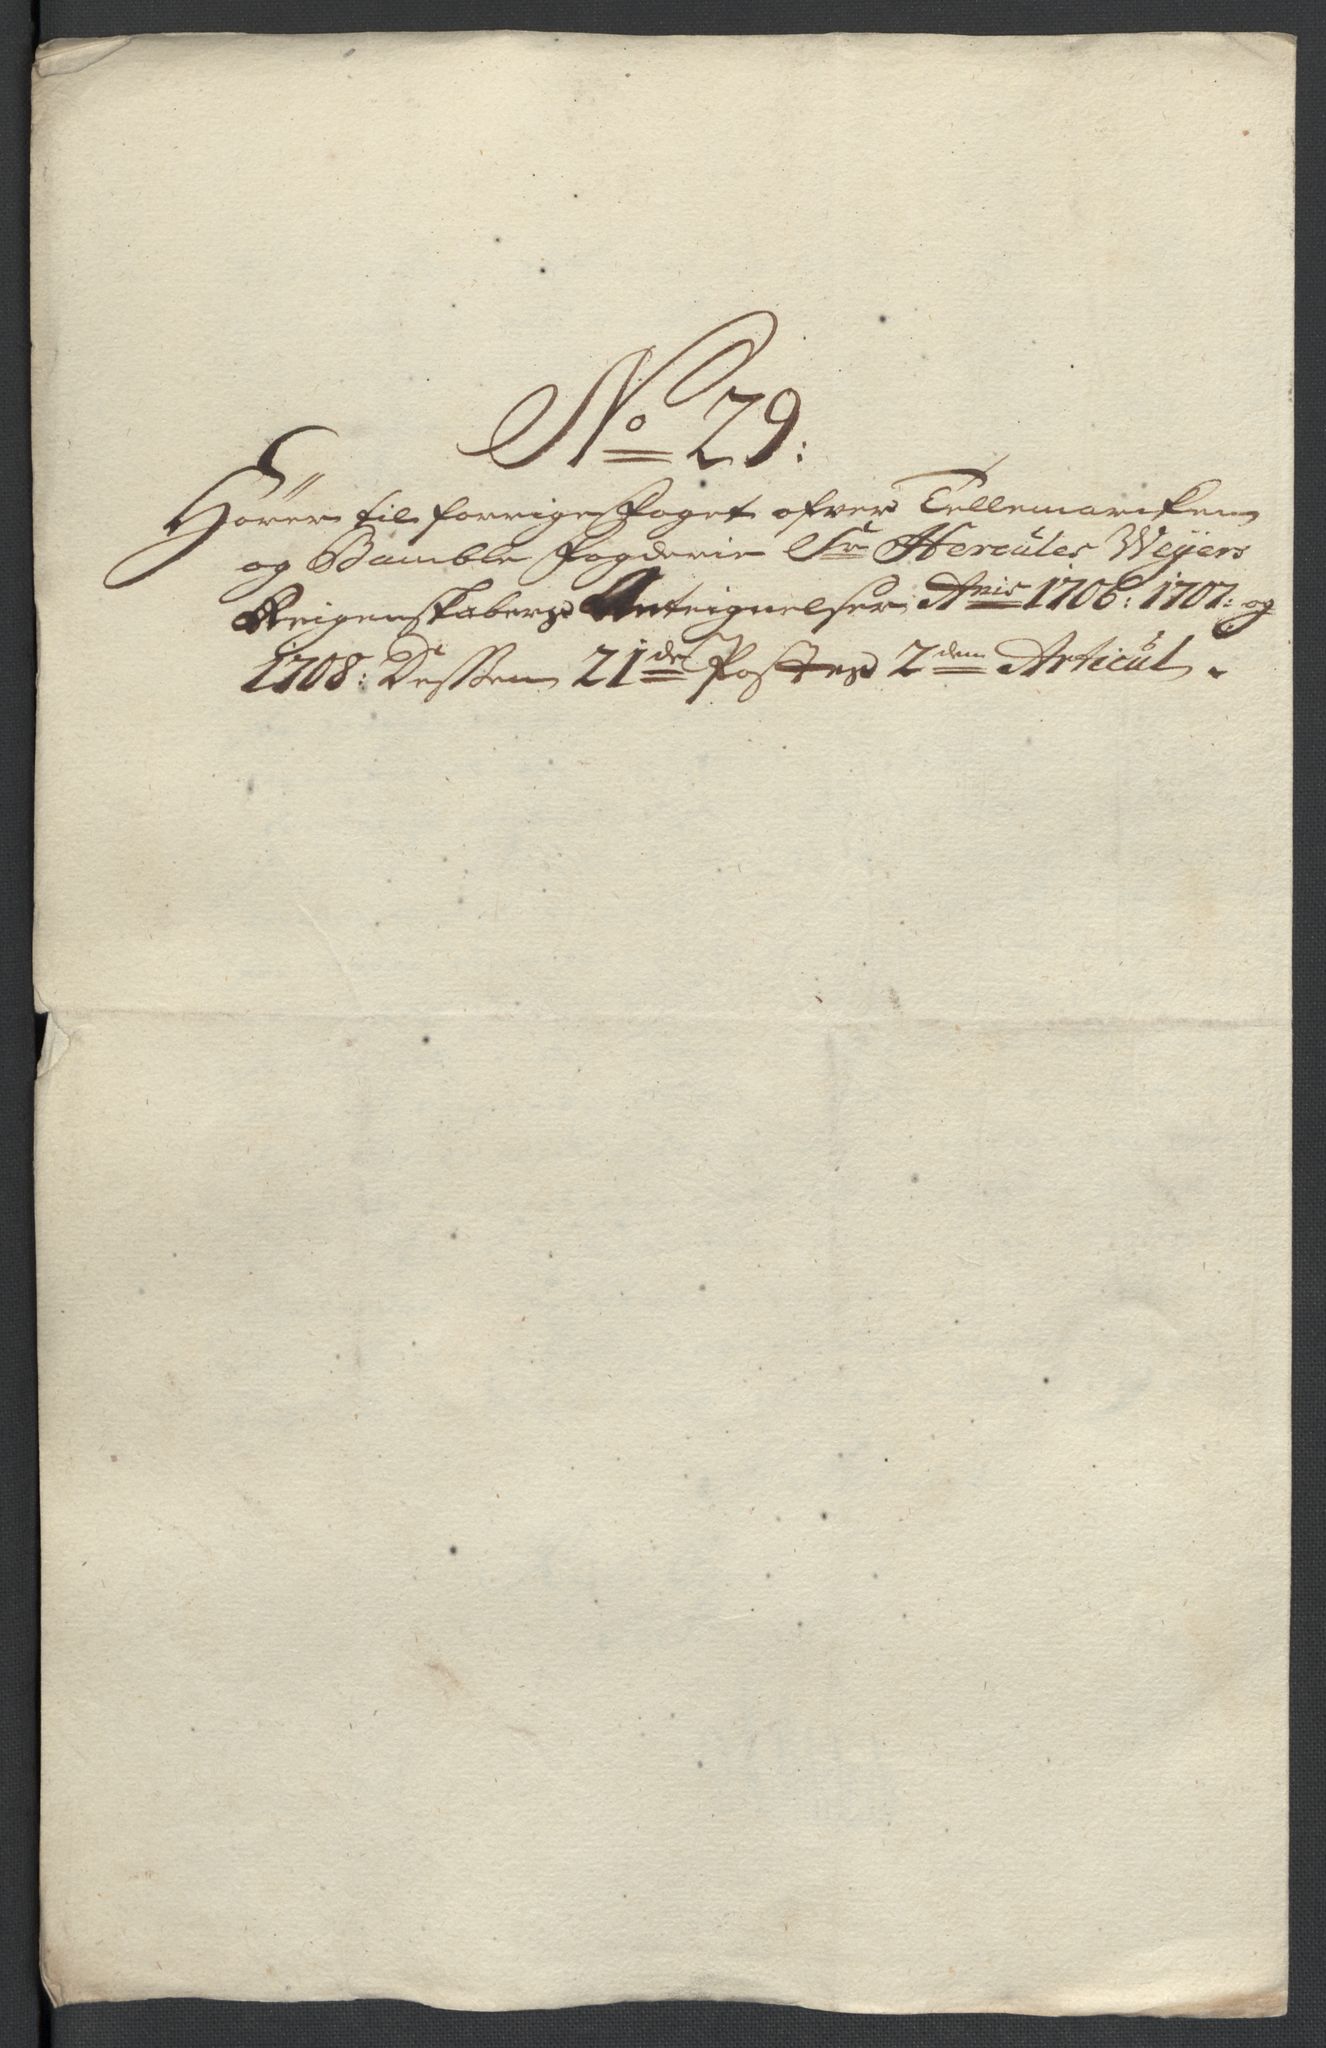 No 29:
Hörer til forrige Foget ofver Tellemarcken
og Bamble fogderie Sr Hercules Weyers
Reigenskabers Anteignelser Anis 1706: 1707: og
1708: Dessen 21de Postes 2dem Articul.